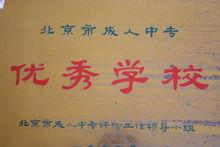 北京市成人中专
优秀学校
北京市成人中专评估工作领导小组